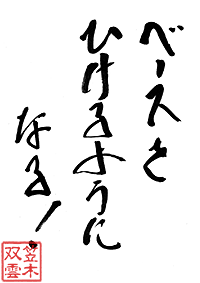 ベースを
ひけるように
なる!
笠木
双雲